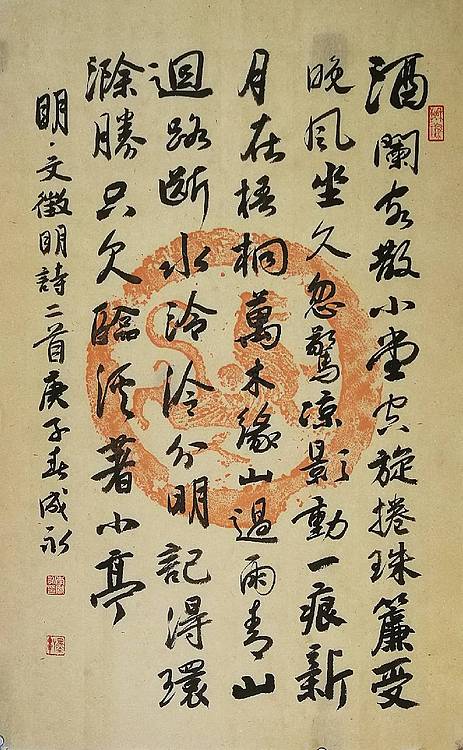 酒闌客散小堂空旋捲珠簾受
晚風坐久忽驚涼影動一痕新
月在梧桐萬木緣山過雨青山
迴路斷水泠泠分明記得環
滁勝只欠臨溪著小亭
明·文徵明詩二首庚子春成永